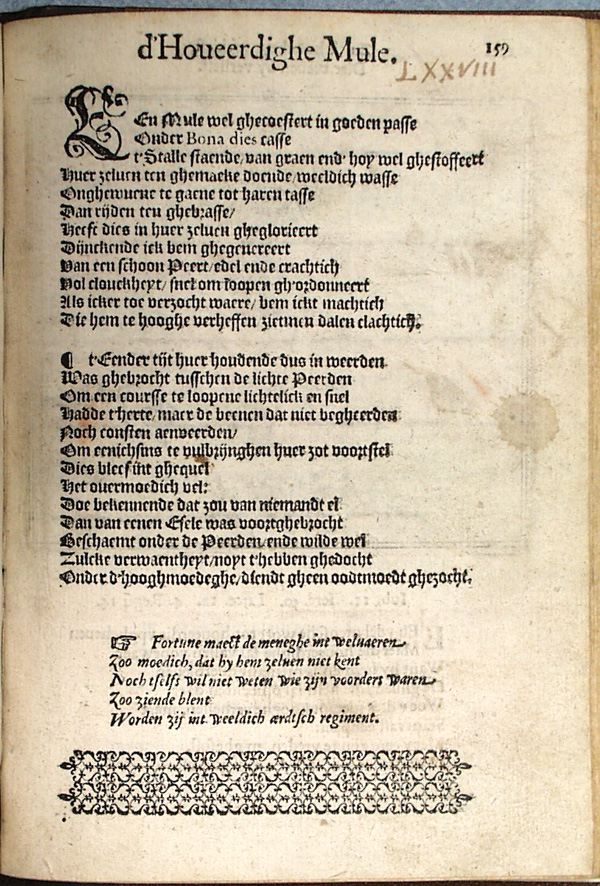 d'Houeerdighe Mule.
159
LXXVIII
EEn Mule wel ghecoestert in goeden passe
Onder Bona dies casse
t'Stalle staende, van graen end' hoy wel ghestoffeert
Huer zeluen ten ghemacke doende/weeldich wasse
Onghewuene te gaene tot haren tasse
Dan rijden teu ghebrasse/
Heeft dies in huer zeluen gheglorieert
Dijnckende ick bem ghegenereert
Van een schoon Peert/edel ende crachtich
Vol clouckheyt/ snel om loopen gh'ordonneert
Als icker toe verzocht waere/ bem ickt machtich
Die hem te hooghe verheffen zietmen dalen clachtich.
¶ t'Eender tijt huer houdende dus in weerden
Was ghebrocht tusschen de lichte Peerden
Om een coursse te loopene lichtelick en snel
Hadde t'herte, maer de beenen dat niet begheerden
Noch consten aenveerden/
Om eenichsins te vulbrijnghen huer zot voortstel
Dies bleef int ghequel
Het ouermoedich vel:
Doe bekennende dat zou van niemandt el
Dan van eenen Esele was voortghebrocht
Geschaemt onder de Peerden/ende wilde wel
Zulcke verwaentheyt/noyt t'hebben ghedocht
Onder d'hooghmoedeghe/diendt gheen oodtmoedt ghezocht.
☞ Fortune maeckt de meneghe int weluaeren
Zoo moedich, dat hy hem zeluen niet kent
Noch tselfs wil niet weten wie zijn voorders waren
Zoo ziende blent
Worden zij int weeldich ærdtsch regiment.